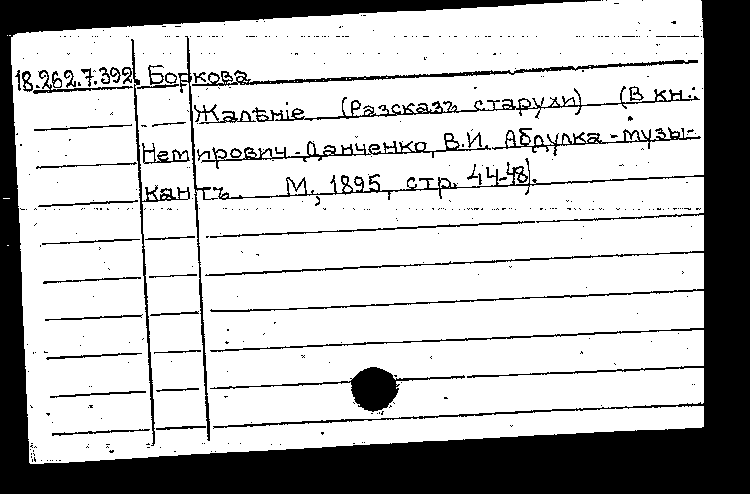 18.262.7.392. Боркова
Жалѣніе (Разсказъ старухи) (В кн.:
Немирович-Данченко, В.И. Абдулка-музы-
кантъ. М., 1895, стр. 44-48).